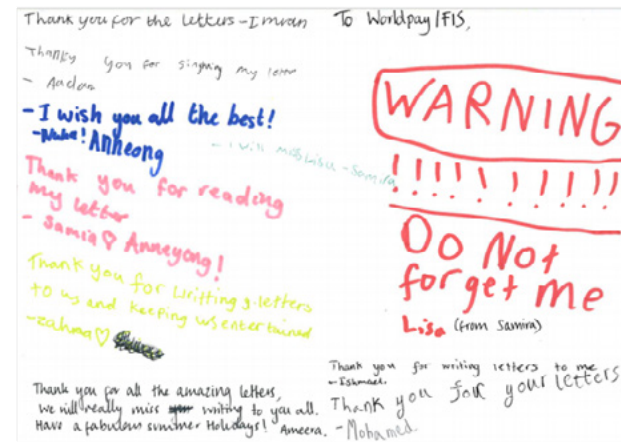 Thank you for the letters - Imran
Thanky you for singning my letter
- Aadam
- I wish you all the best!
! Anneong
- I will miss Lisa - Samira
Thank you for reading
my letter
- Samia ♡ Anneyong!
Thank you for writting 3 letters
to us and keeping us entertained
- zahra ♡
Thank you for all the amazing letters,
we will really miss writing to you all.
Have a fabulous summer Holidays! Ameera.
To Worldpay/FIS,
WARNING
!!!!!!!!!!
Do Not
forget me
Lisa (from Samira)
Thank you for writing letters to me
- Ishmael.
Thank you for your letters
- Mohamed